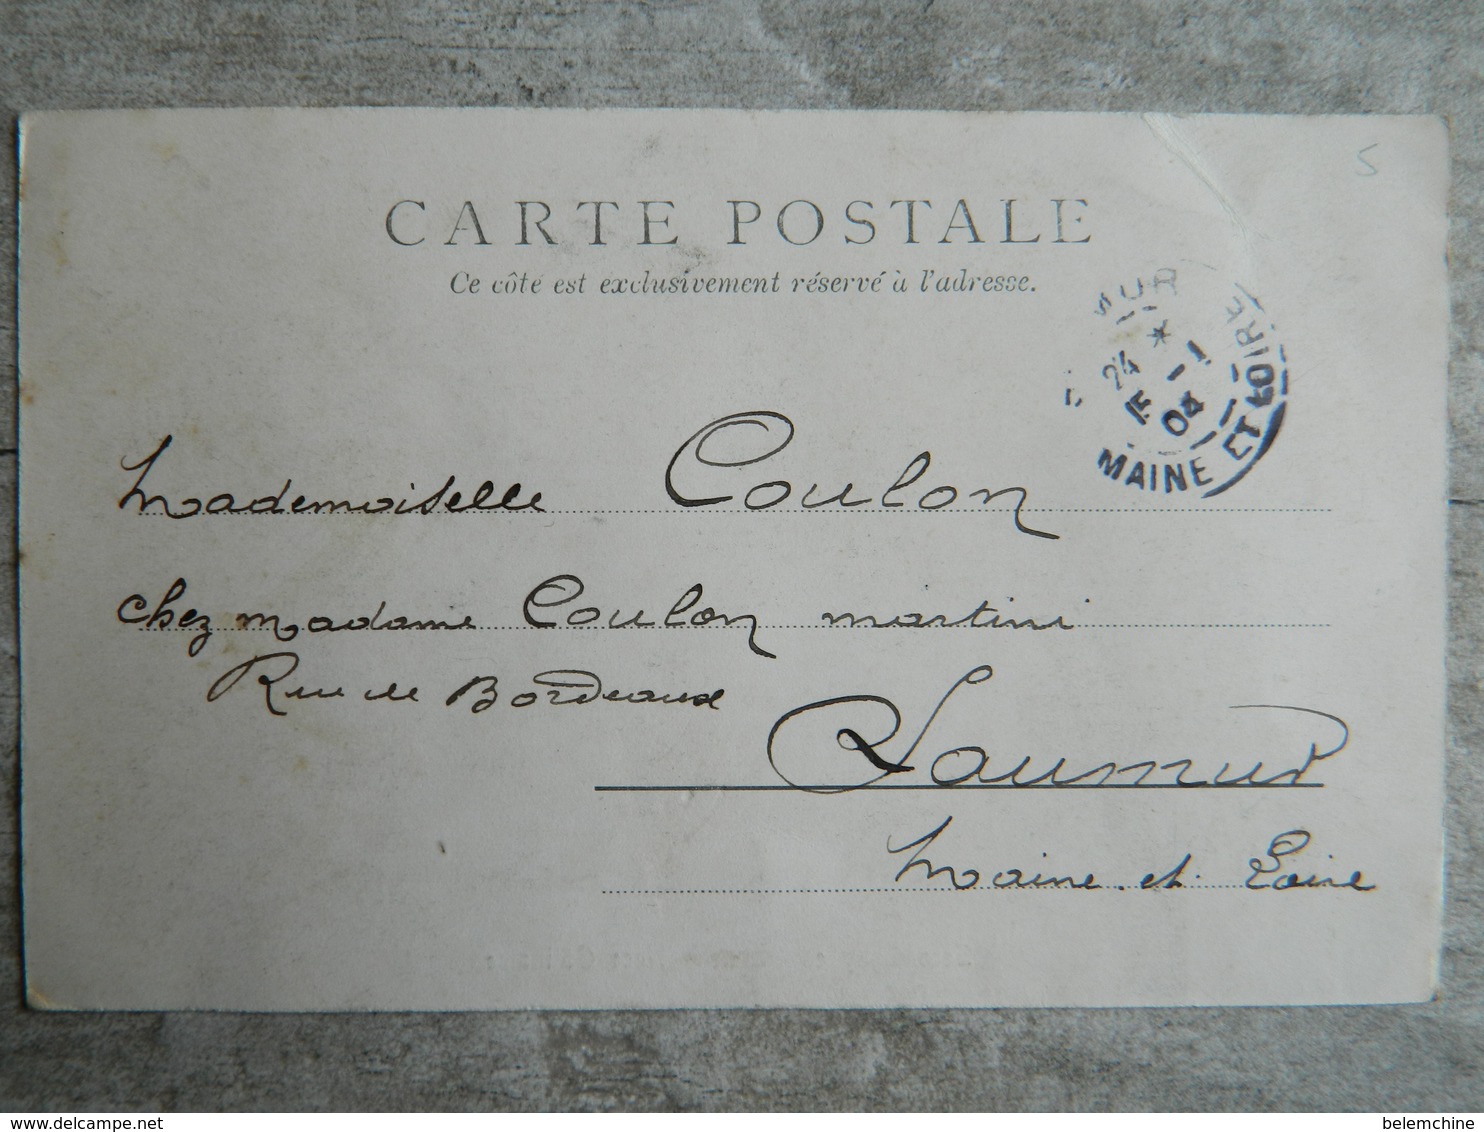 5
CARTE POSTALE
Ce côté est exclusivement réservé à l'adresse.
SUR
24 *
1
04
MAINE ET LOIRE
Mademoiselle Coulon
chez madame Coulon martini
Rue de Bordeaux
Saumur
Maine et Loire
www.delcampe.net
belemchine